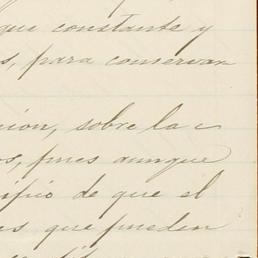 que constante y
s, para conservar
cion, sobre la
os, pues aunque
ificio de que el
es que pueden